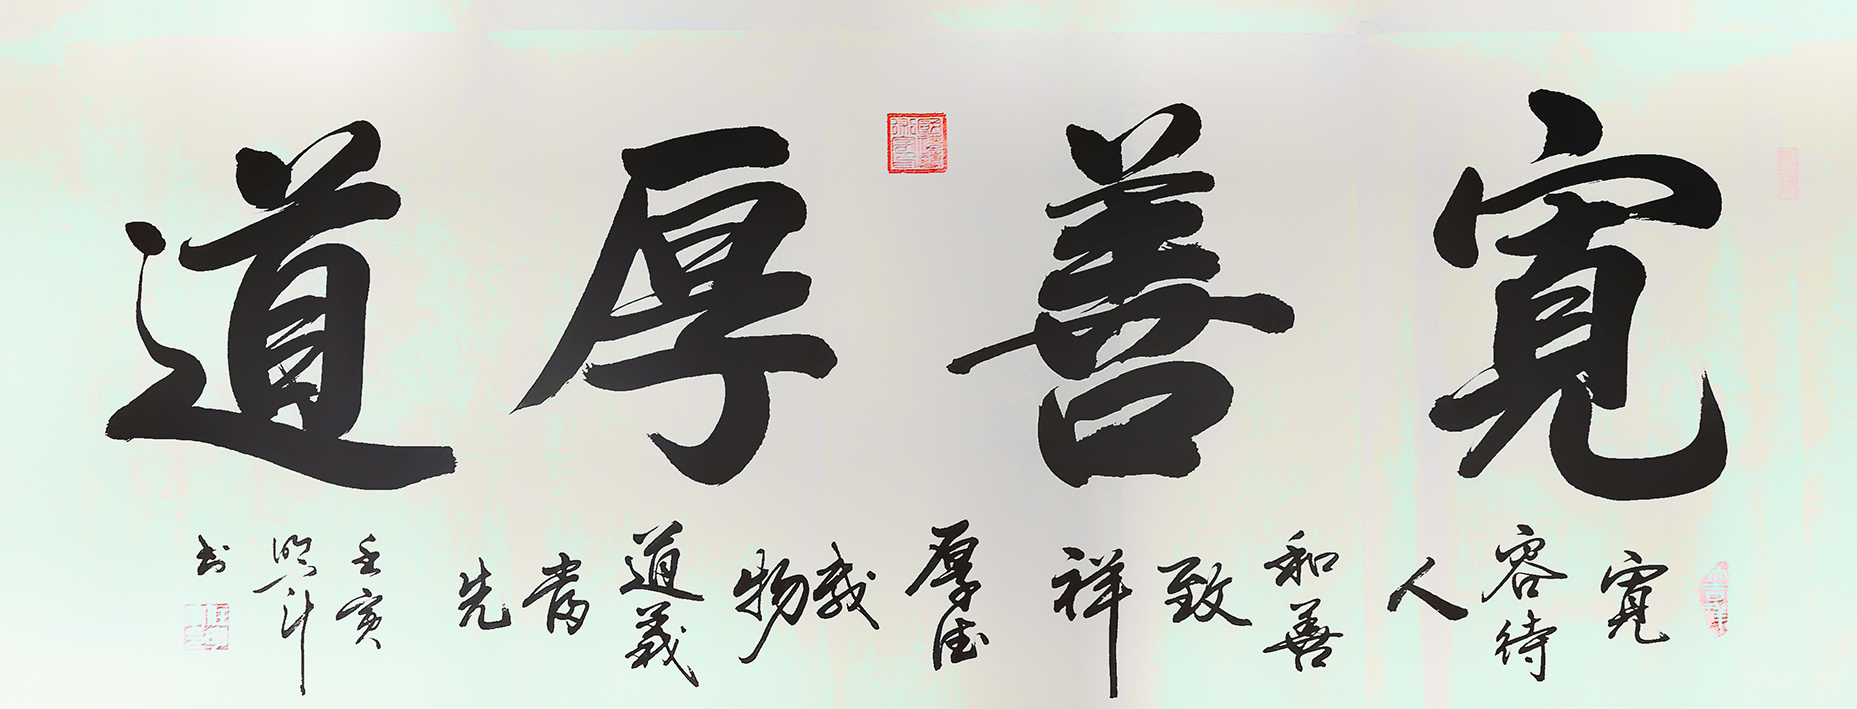 寬善厚道
寬容待人
和善致祥
厚德載物
道義為先
壬寅
书